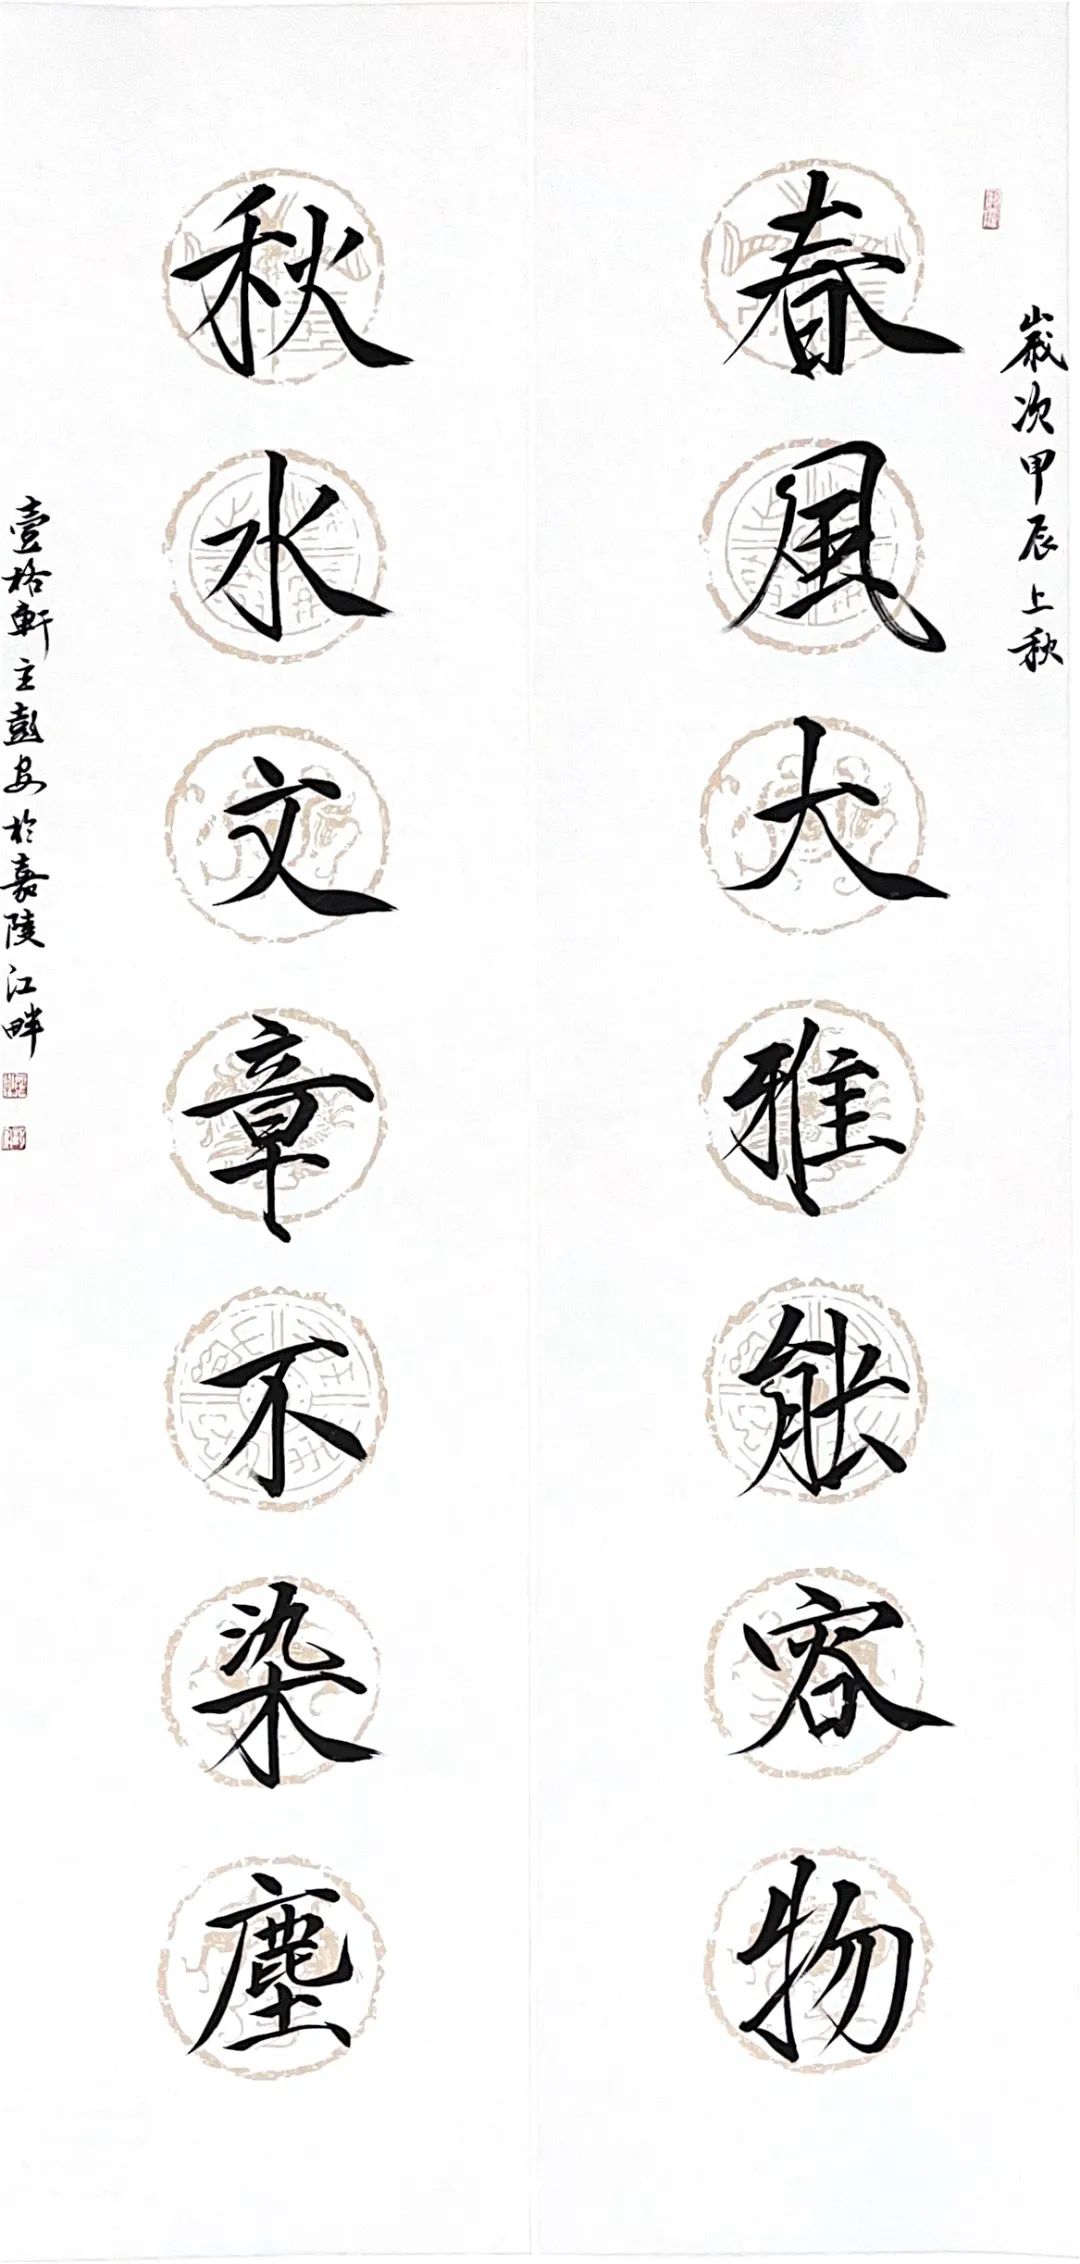 歲次甲辰上秋
春風大雅能容物
秋水文章不染塵
壹格軒主彭安於嘉陵江畔